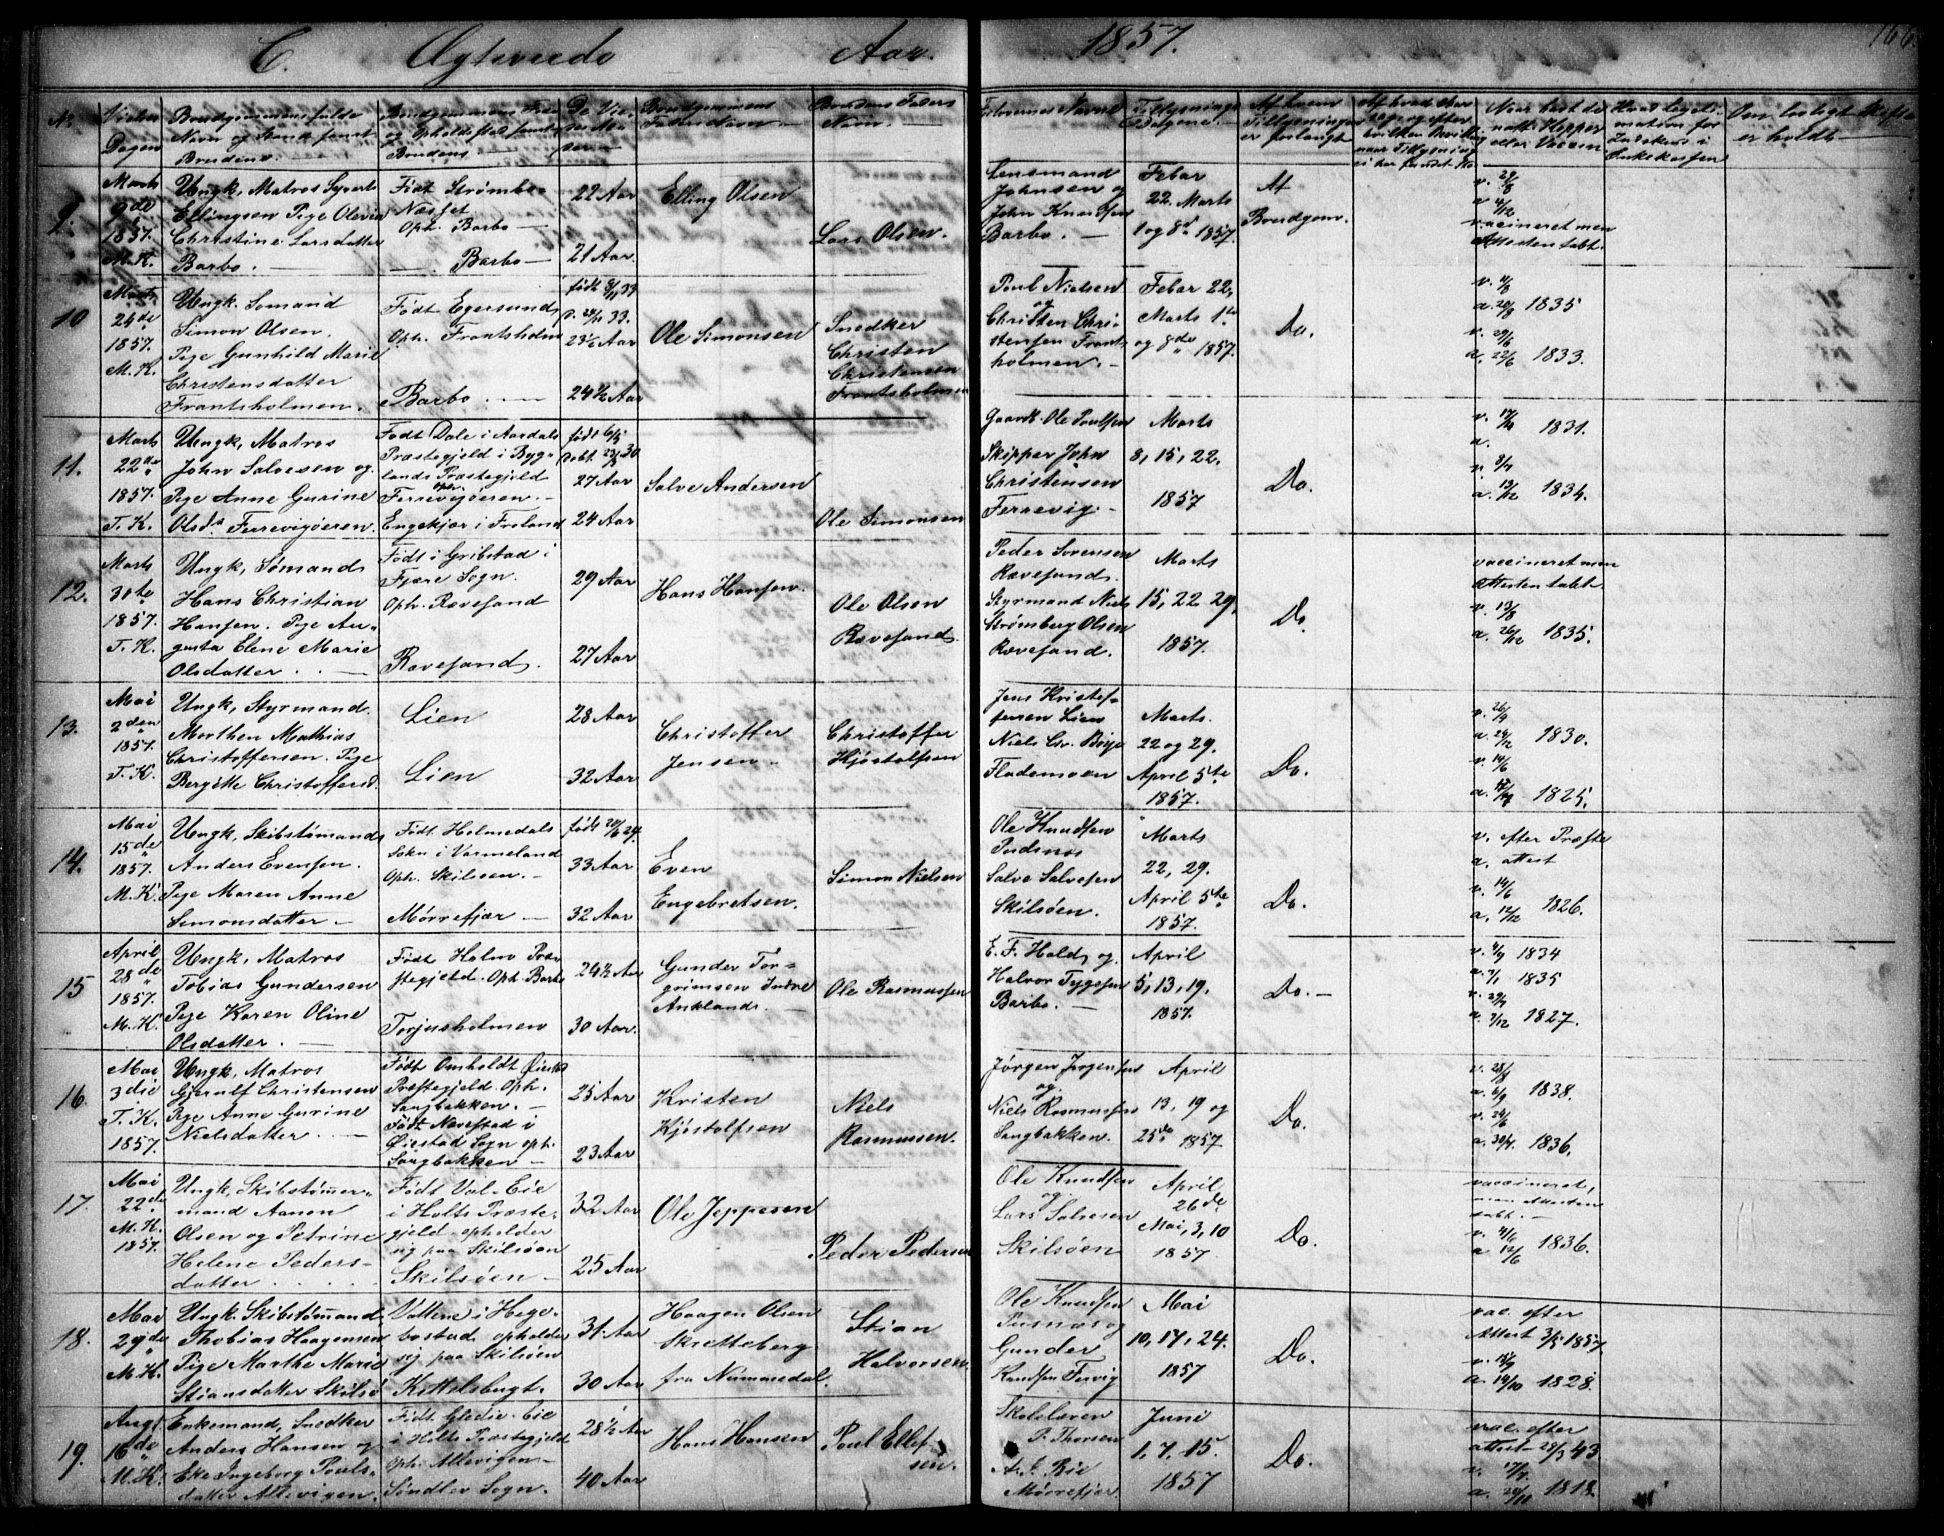 C. Ægteviede Aar 1857. 166
No.
Vielses Dagen
Brudgommens fulde Navn og Stand samt Brudens
Brudgommens Føde og Opholdssted samt Brudens
De Viedes Alder
Brudgommens Faders Navn
Brudens Faders Navn
Forlovernes Navne
Tillysnings Dagene
Af hvem Tillysningen er forlangt
Naar havt de natl. Kopper eller Vaccin
Om lovligt Skifte er holdt
9.
Marts
9de
1857.
M.K.
Ungk, Matros Syvert
Ellingsen Pige Olevia
Christine Larsdatter
Barbo.
Født Strømbo
Næsset
Oph. Barbo
Barbo
22 Aar
21 Aar
Elling Olsen
Lars Olsen.
Lensmand
Johnsen og
John Knudsen
Barbo.
Febar
22. Marts
1 og 8de 1857.
Af
Brudgom.
v. 29/8
a 4/12
vaccineret men
Attesten tabt.
10
Marts
24de
1857.
M.K.
Ungk. Sømand
Simon Olsen.
Pige Gunhild Marie
Christensdatter
Frantsholmen.
Født Egersund
Oph. Frantsholmen
Barbo
23½ Aar
24½ Aar
Ole Simonsen
Snedker
Christen
Christensen
Frantsholmen
Poul Nielsen
og
Christen Chri-
stensen Frants
holmen.
Febar 22,
Marts 1te
og 8de 1857.
Do.
v. 4/8
a. 20/8 1835
v. 29/6
a. 22/6 1833.
11.
Marts
22de
1857.
T.K.
Ungk, Matros
John Salvesen og
Pige Anne Gurine
Olsd. Ferrevigøeren.
Født Dale i Aardals
Præstegjeld i Byg-
lands Præstegjeld
oph. Ferrevigøeren.
Engekjær i Froland
født 6/5
27 Aar
24 Aar
Salve Andersen
Ole Simonsen
Gaardb. Ole Poulsen
Skipper John
Christensen
Ferrevig.
Marts
8, 15, 22.
1857
Do.
v. 17/10 1831.
a.
v. 8/7
a. 13/12 1834.
12.
Marts
31te
1857.
T.K.
Ungk, Sømand
Hans Christian
Hansen. Pige Au-
gusta Elene Marie
Olsdatter
Født i Gribstad i
Fjære Sogn.
Oph. Rævesand
Rævesand.
29 Aar
27 Aar
Hans Hansen.
Ole Olsen
Rævesand.
Peder Sørensen
Rævesand.
Styrmand Niels
Strømberg Olsen
Rævesand.
Marts
15, 22, 29,
1857.
Do.
vaccineret men
attesten tabt.
v. 13/8
a. 26/12 1835.
13.
Mai
2den
1857.
T.K.
Ungk, Styrmand.
Morthen Mathias
Christoffersen. Pige
Bergitte Christoffersd.
Lien
Lien
28 Aar
32 Aar
Christoffer
Jensen
Christoffer
Hjøstolfsen
Jens Kristof-
fersen Lien
Niels Chr. Børje
Flademoen
Marts.
22 og 29.
April 5te
1857.
Do.
v. 26/9
a. 24/12 1830.
v. 14/6
a. 1825.
14.
Mai
15de
1857.
M.K.
Ungk, Skibstømmand
Anders Evensen.
Pige Maren Anne
Simonsdatter
Født. Holmedals
Sokn i Varmeland
Oph. Skilsøen.
Mørrefjær
33 Aar
32 Aar
Even
Engebretsen.
Simon Nielsen
Ole Knudsen
Pusnæs
Salve Salvesen
Skilsøen.
Marts
22, 29.
April 5te
1857.
Do.
v. efter Præste
a. attest
v. 14/6
a. 12/12 1826.
15
April
28de
1857.
M.K.
Ungk, Matros
Tobias Gundersen
Pige Karen Oline
Olsdatter.
Født Holme Præ-
stegjeld. Oph. Barbo
Torjusholmen
24½ Aar
30 Aar.
Gunder Tor-
grimsen Indre
Anklands.
Ole Rasmussen
E. F. Hald og
Halvor Tygesen
Barbo.
April
5, 13, 19.
1857.
Do.
v. 4/9 1834
a. 7/1 1835
v. 29/7
a. 7/12 1827.
16
Mai
3die
T.K.
1857.
Ungk, Matros
Gjerulf Christensen
Pige Anne Gurine
Nielsdatter
Født Omholdt Øiestad
Præstegjeld. Oph.
Sangbakken.
Født Næverstad i
Øiestad Sogn oph.
Sangbakken
25 Aar
23 Aar
Kristen
Kjøstolfsen
Niels
Rasmussen.
Jørgen Jørgensen
og
Niels Rasmussen
Sangbakken.
April
13, 19 og
25de 1857
Do.
v. 28/8
a. 6/9 1838.
v. 24/6
a. 30/7 1836.
17.
Mai
22de
M.K.
1857.
Ungk, Skibstømmer-
mand Aanen
Olsen og Petrine
Helene Peders-
datter
Født Val-Eie
i Holts Præste-
gjeld opholder
sig paa Skilsøen
Skilsøen
32 Aar
25 Aar
Ole Jeppesen
Peder Pedersen
Ole Knudsen
og
Lars Salvesen
Skilsøen
April
26de
Mai, 3, 10
1857.
Do.
vaccineret,
men Attesten
tabt.
v. 4/6
a 12/6 1836.
18.
Mai
29de
M.K.
Ungk. Skibstømmand.
Thobias Haagensen
Pige Marthe Marie
Stiansdatter Skilsø
Vatten i Hege-
bostad opholder
sig paa Skilsøen
Kittelsbugt.
31 Aar
30 Aar
Haagen Olsen
Skretteberg
fra Nummedal.
Stian
Halvorsen.
Ole Knudsen
Pusnæs og
Gunder
Knudsen Fervig
Mai
10, 17, 24.
1857
Do.
vac. efter
Attest 3/5 1857
v. 18/9
a. 14/10 1828.
19.
Augst
16de
M.K.
Enkemand, Snedker
Anders Hansen og
Eke Ingeborg Pouls-
datter Allevigen.
Født Glødie-Eie
i Holts Præstegjeld
oph. Allevigen
Søndlev Sogn.
28½ Aar
40 Aar
Hans Hansen
Poul Ellef
sen.
Skolelæren
P. Thorsen
A. J. Bie
Mørrefjær.
Juni
1, 7, 15.
1857
Do.
vac. efter
attest 28/5 43.
v. 17/7
a. 20/11 1818.